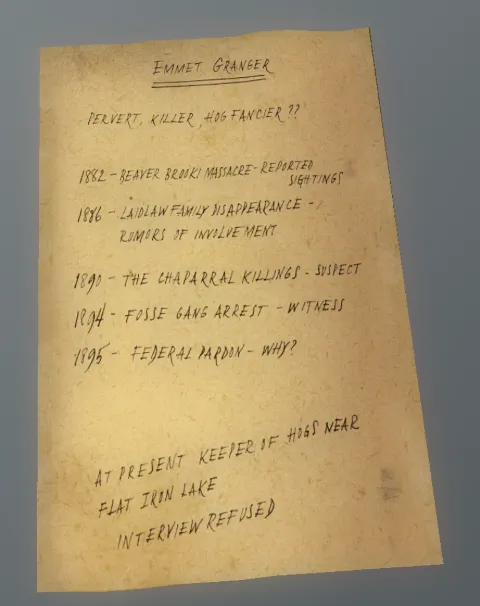 EMMET GRANGER
PERVERT, KILLER, HOG FANCIER??
1882 - BEAVER BROOK MASSACRE - REPORTED
SIGHTINGS
1886 - LAIDLAW FAMILY DISAPPEARANCE -
RUMORS OF INVOLVEMENT
1890 - THE CHAPARRAL KILLINGS - SUSPECT
1894 - FOSSE GANG ARREST - WITNESS
1895 - FEDERAL PARDON - WHY?
AT PRESENT KEEPER OF HOGS NEAR
FLAT IRON LAKE
INTERVIEW REFUSED